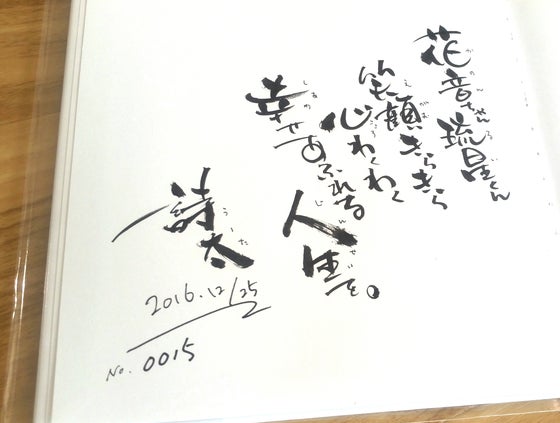 花音ちゃん 琉星くん
笑顔きらきら
心わくわく
幸せあふれる
人生を。
詩太
2016.12/25
No. 0015